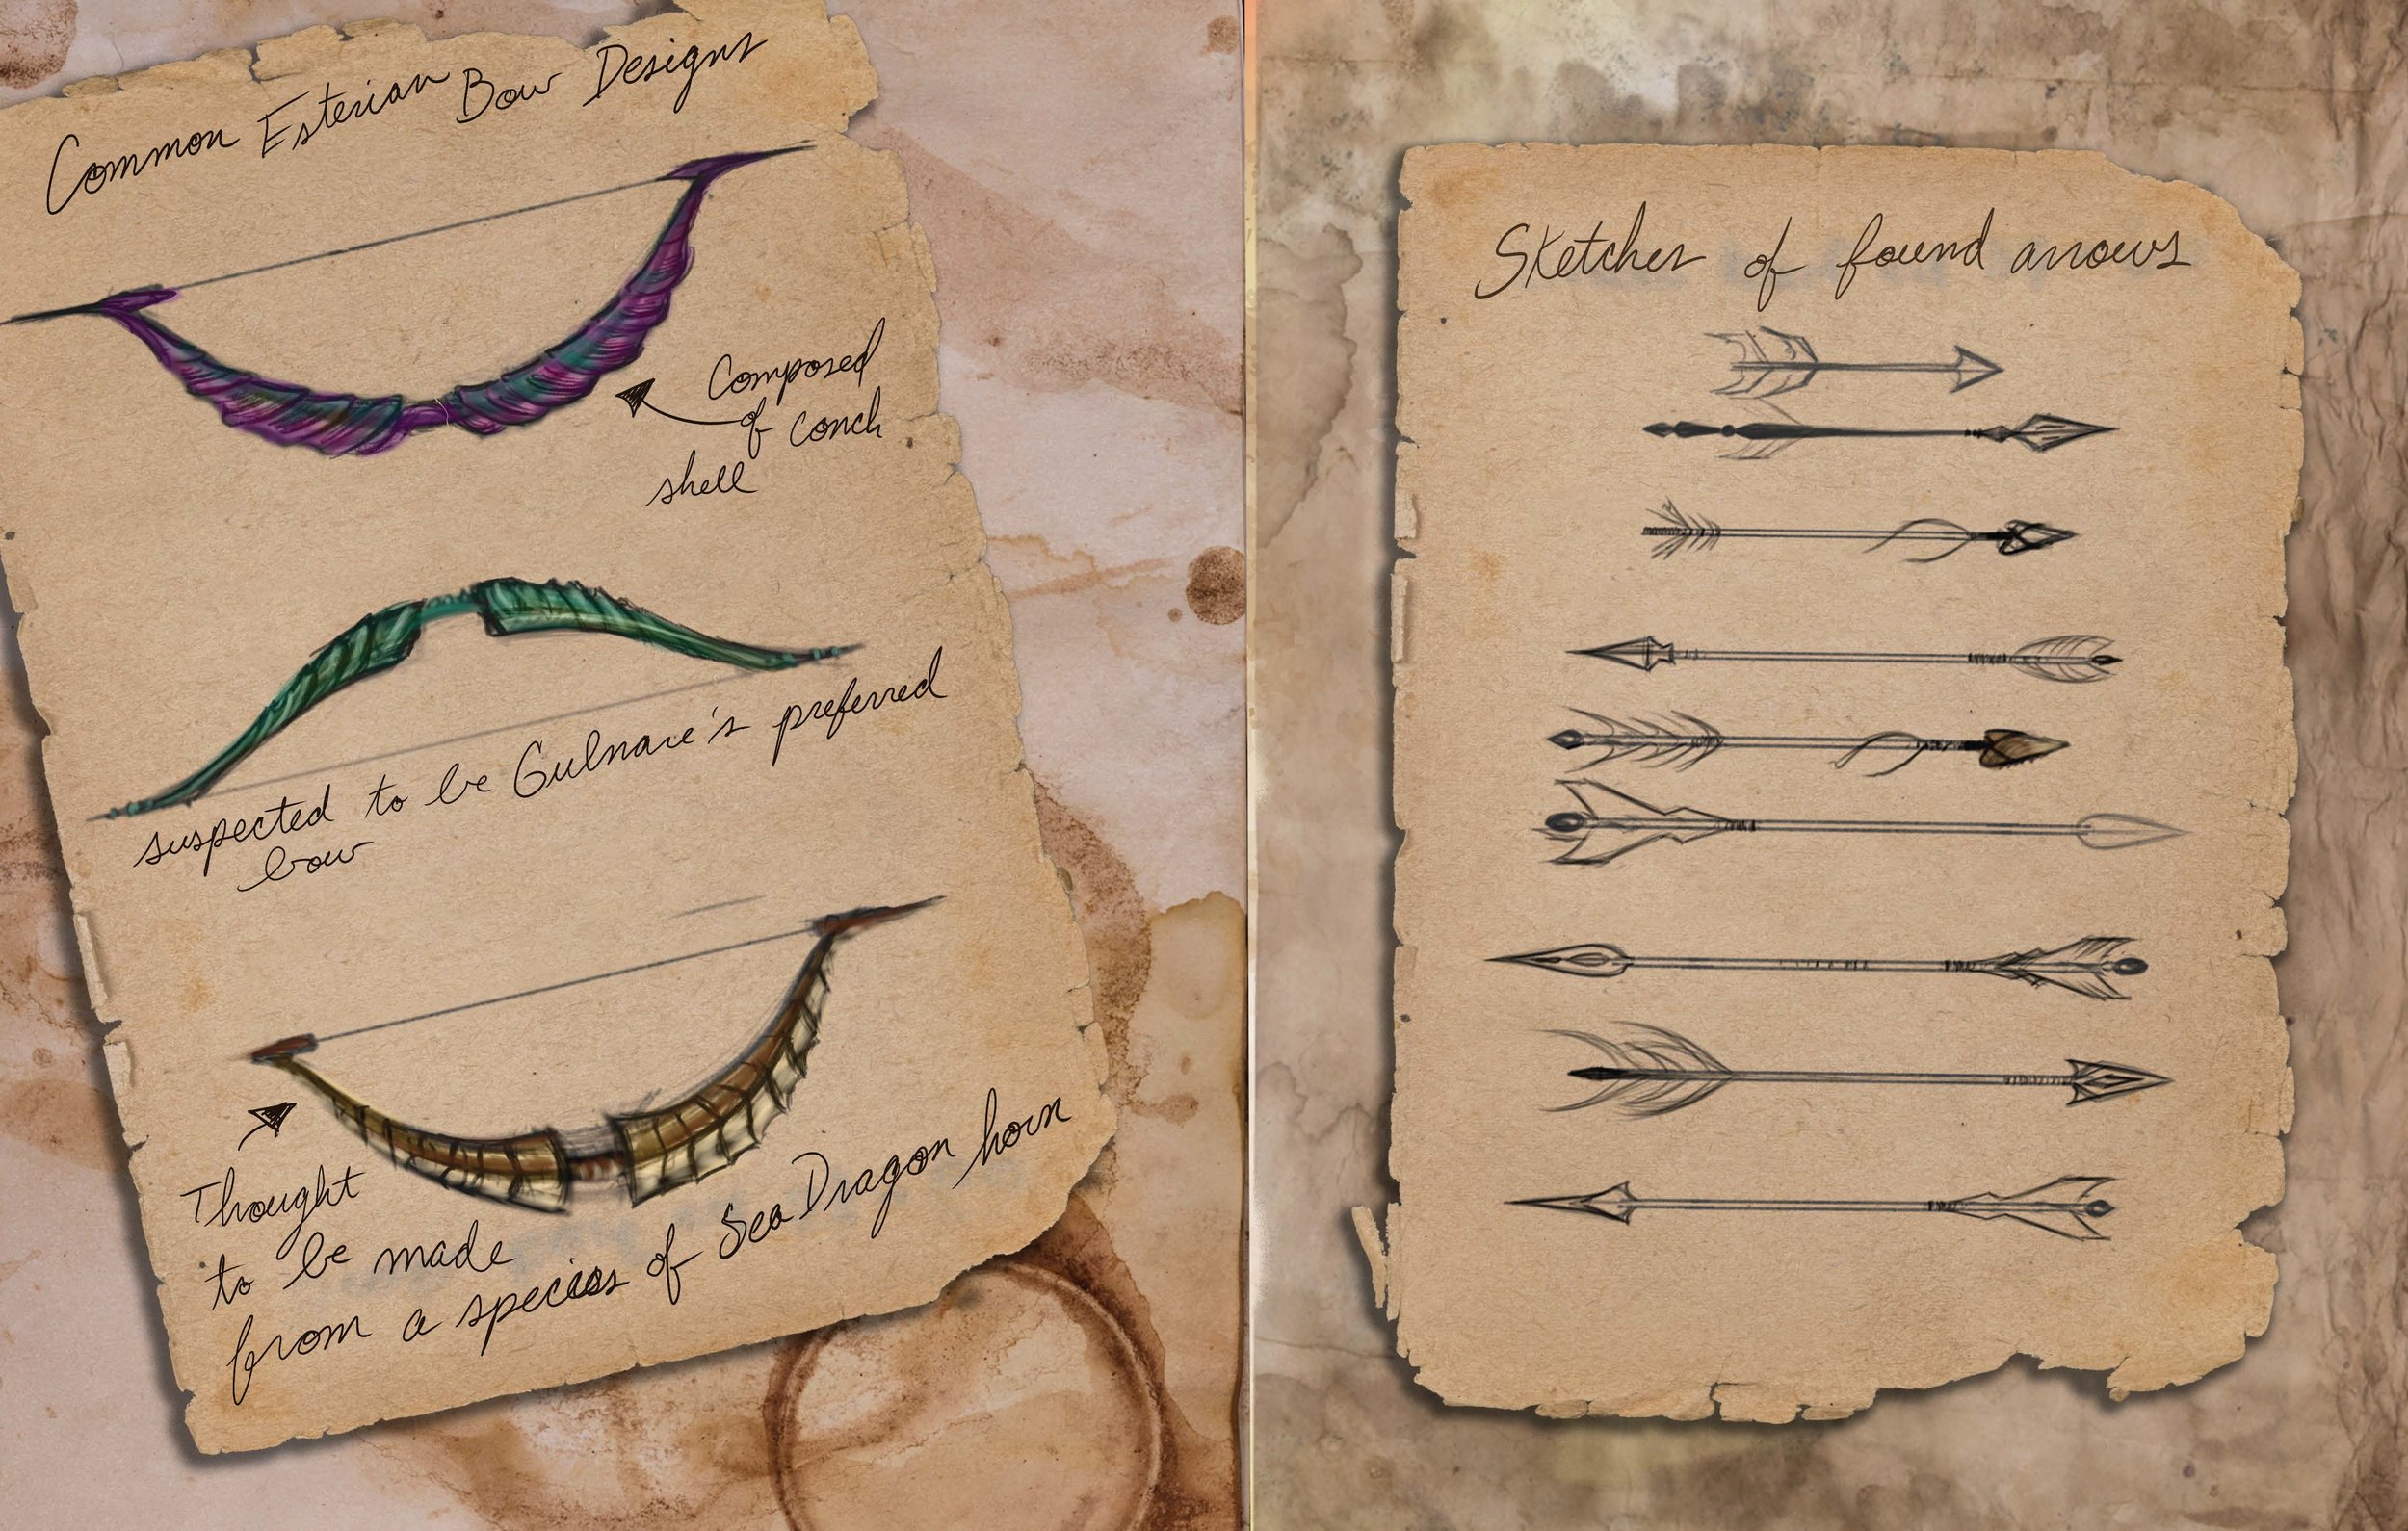 Common Esterian Bow Designs
Composed
of conch
shell
suspected to be Gulnare's preferred
bow
Thought
to be made
from a species of Sea Dragon horn
Sketches of found arrows